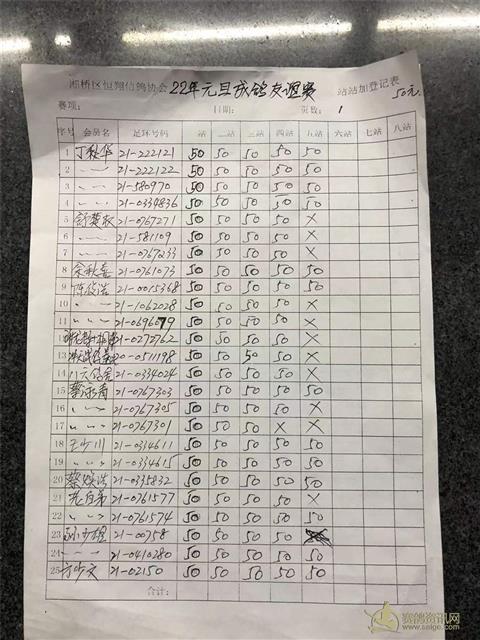 湘桥区恒翔信鸽协会22年元旦成鸽友谊赛 站站加登记表
赛项: 日期: 页数: 1 50元
序号 会员名 足环号码 一站 二站 三站 四站 五站 六站 七站 八站
1 丁秋华 21-222121 50 50 50 50 50
2 〃 21-222122 50 50 50 50 50
3 〃 21-580970 50 50 50 50 50
4 〃 21-0334836 50 50 50 50 50
5 21-0767271 50 50 50 50 ×
6 〃 21-581109 50 50 50 50 ×
7 〃 21-0767233 50 50 50 50 ×
8 余秋喜 21-0761073 50 50 50 50 50
9 陈俊浩 21-0015368 50 50 50 50 50
10 〃 21-1062028 50 50 50 50 ×
11 〃 21-0696079 50 50 50 50 ×
12 21-0272762 50 50 50 50 ×
13 20-0511198 50 50 50 50 ×
14 八六鸽舍 21-0334024 50 50 50 50 ×
15 蔡永青 21-0767303 50 50 50 50 50
16 〃 21-0767305 50 50 50 50 ×
17 〃 21-0767301 50 50 50 × ×
18 王少川 21-0334611 50 50 50 50 50
19 〃 21-0334615 50 50 50 50 50
20 蔡焕浩 21-0335832 50 50 50 50 50
21 21-0761577 50 50 50 50 ×
22 〃 21-0761574 50 50 50 50 50
23 21-00758 50 50 50 50
24 〃 21-0410280 50 50 50 50 50
25 方少文 21-02150 50 50 50 50 50
合计:
赛鸽资讯网